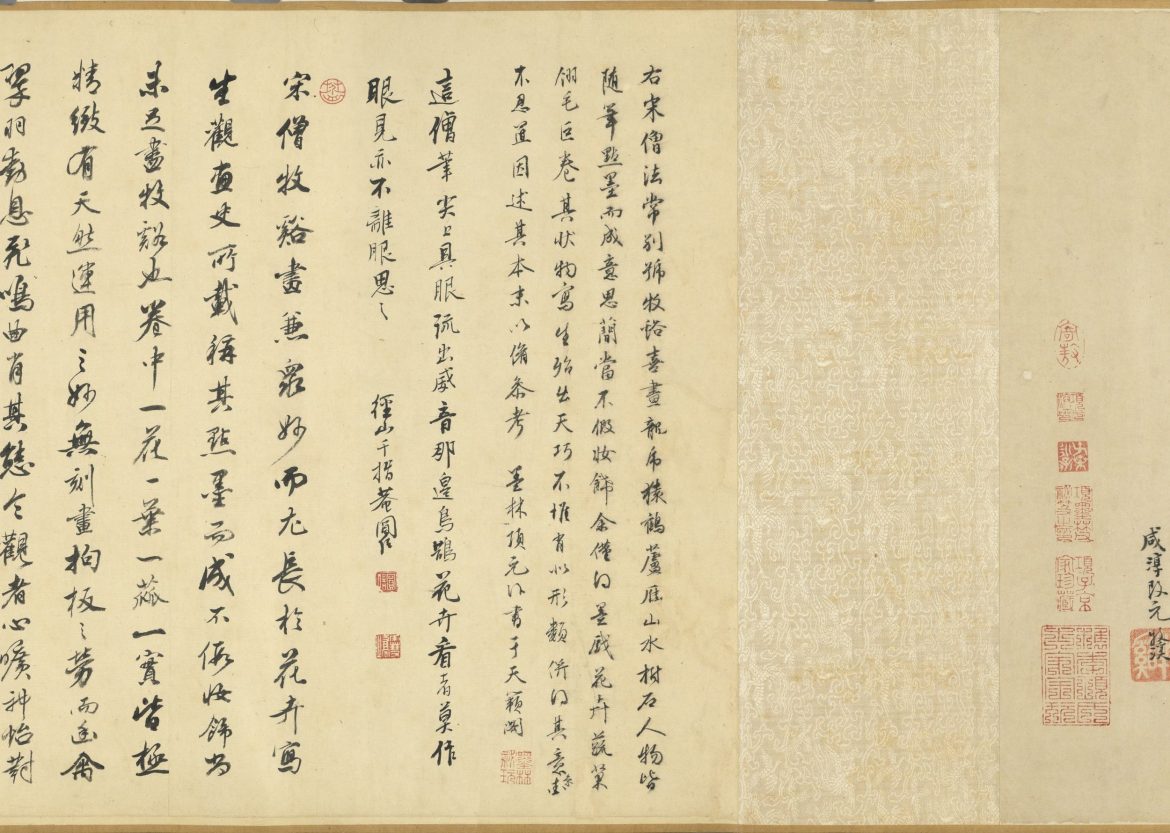 咸淳改元牧谿
右宋僧法常別號牧谿喜畫龍虎猿鶴蘆雁山水樹石人物皆
隨筆點墨而成意思簡當不假妝飾余僅得墨戲花卉蔬菓
翎毛巨卷其狀物寫生殆出天巧不惟肖似形類併得其意
不忍因述其本末以備參考 墨林項元汴書于天籟閣
這僧筆尖上具眼流出威音那邊鳥鵲花卉看者莫作
眼見亦不離眼思之 徑山千指菴圓信
宋僧牧谿畫兼眾妙而尤長於花卉寫
生觀畫史所載稱其點墨而成不假妝飾尚
未足盡牧谿也卷中一花一葉一蓏一實皆極
精緻有天然運用之妙無刻畫拘板之勞而幽禽
翠羽動息飛鳴曲肖其態令觀者心曠神怡對